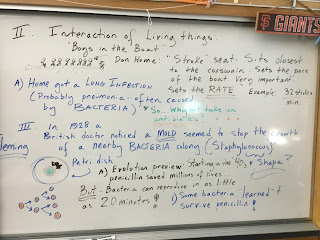 GIANTS
II. Interaction of Living things:
"Boys in the Boat"
Don Hume: "Stroke" seat: Sits closest
to the coxswain. Sets the pace
of the boat. Very important
Sets the RATE Example: 32 strokes
min
A) Hume got a LUNG INFECTION
(Probably pneumonia: often caused
by BACTERIA)
So... Why not take an
antibiotic
III. In 1928 a
British doctor noticed a MOLD seemed to stop the growth
Fleming
of a nearby BACTERIA colony (Staphylococcus)
Petri dish
Shape?
A) Evolution preview: Starting in the 40s,
penicillin saved millions of lives
But: Bacteria can reproduce in as little
as 20 minutes!
1) Some bacteria "learned" to
survive penicillin!